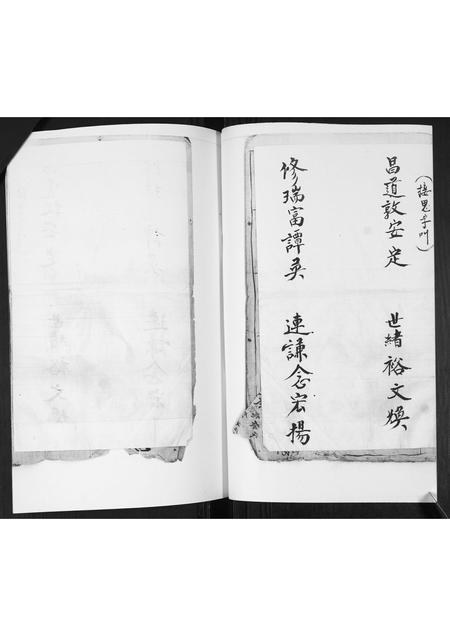 (接思字叫)
昌道敦安定
世緒裕文煥
修瑞富譚奕
連謙念宏揚